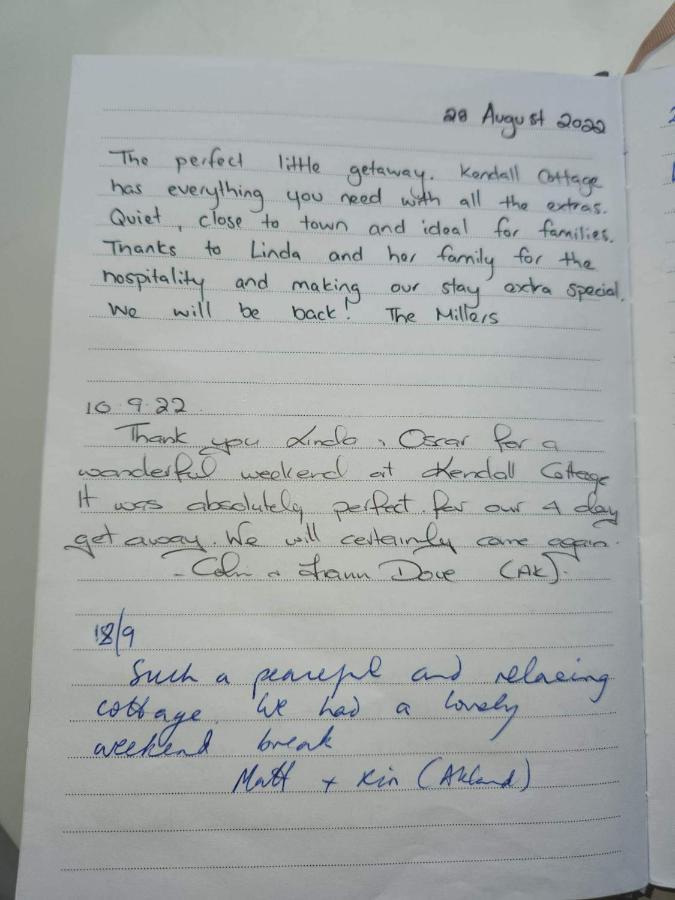 28 August 2022
The perfect little getaway. Kendall Cottage
has everything you need with all the extras.
Quiet, close to town and ideal for families.
Thanks to Linda and her family for the
hospitality and making our stay extra special.
We will be back! The Millers
10.9.22
Thank you Linda, Oscar for a
wonderful weekend at Kendall Cottage
It was absolutely perfect for our 4 day
get away. We will certainly come again.
Dove (AK).
18/9
Such a peaceful and relaxing
cottage. We had a lovely
weekend break
Matt + Kin (Akland)